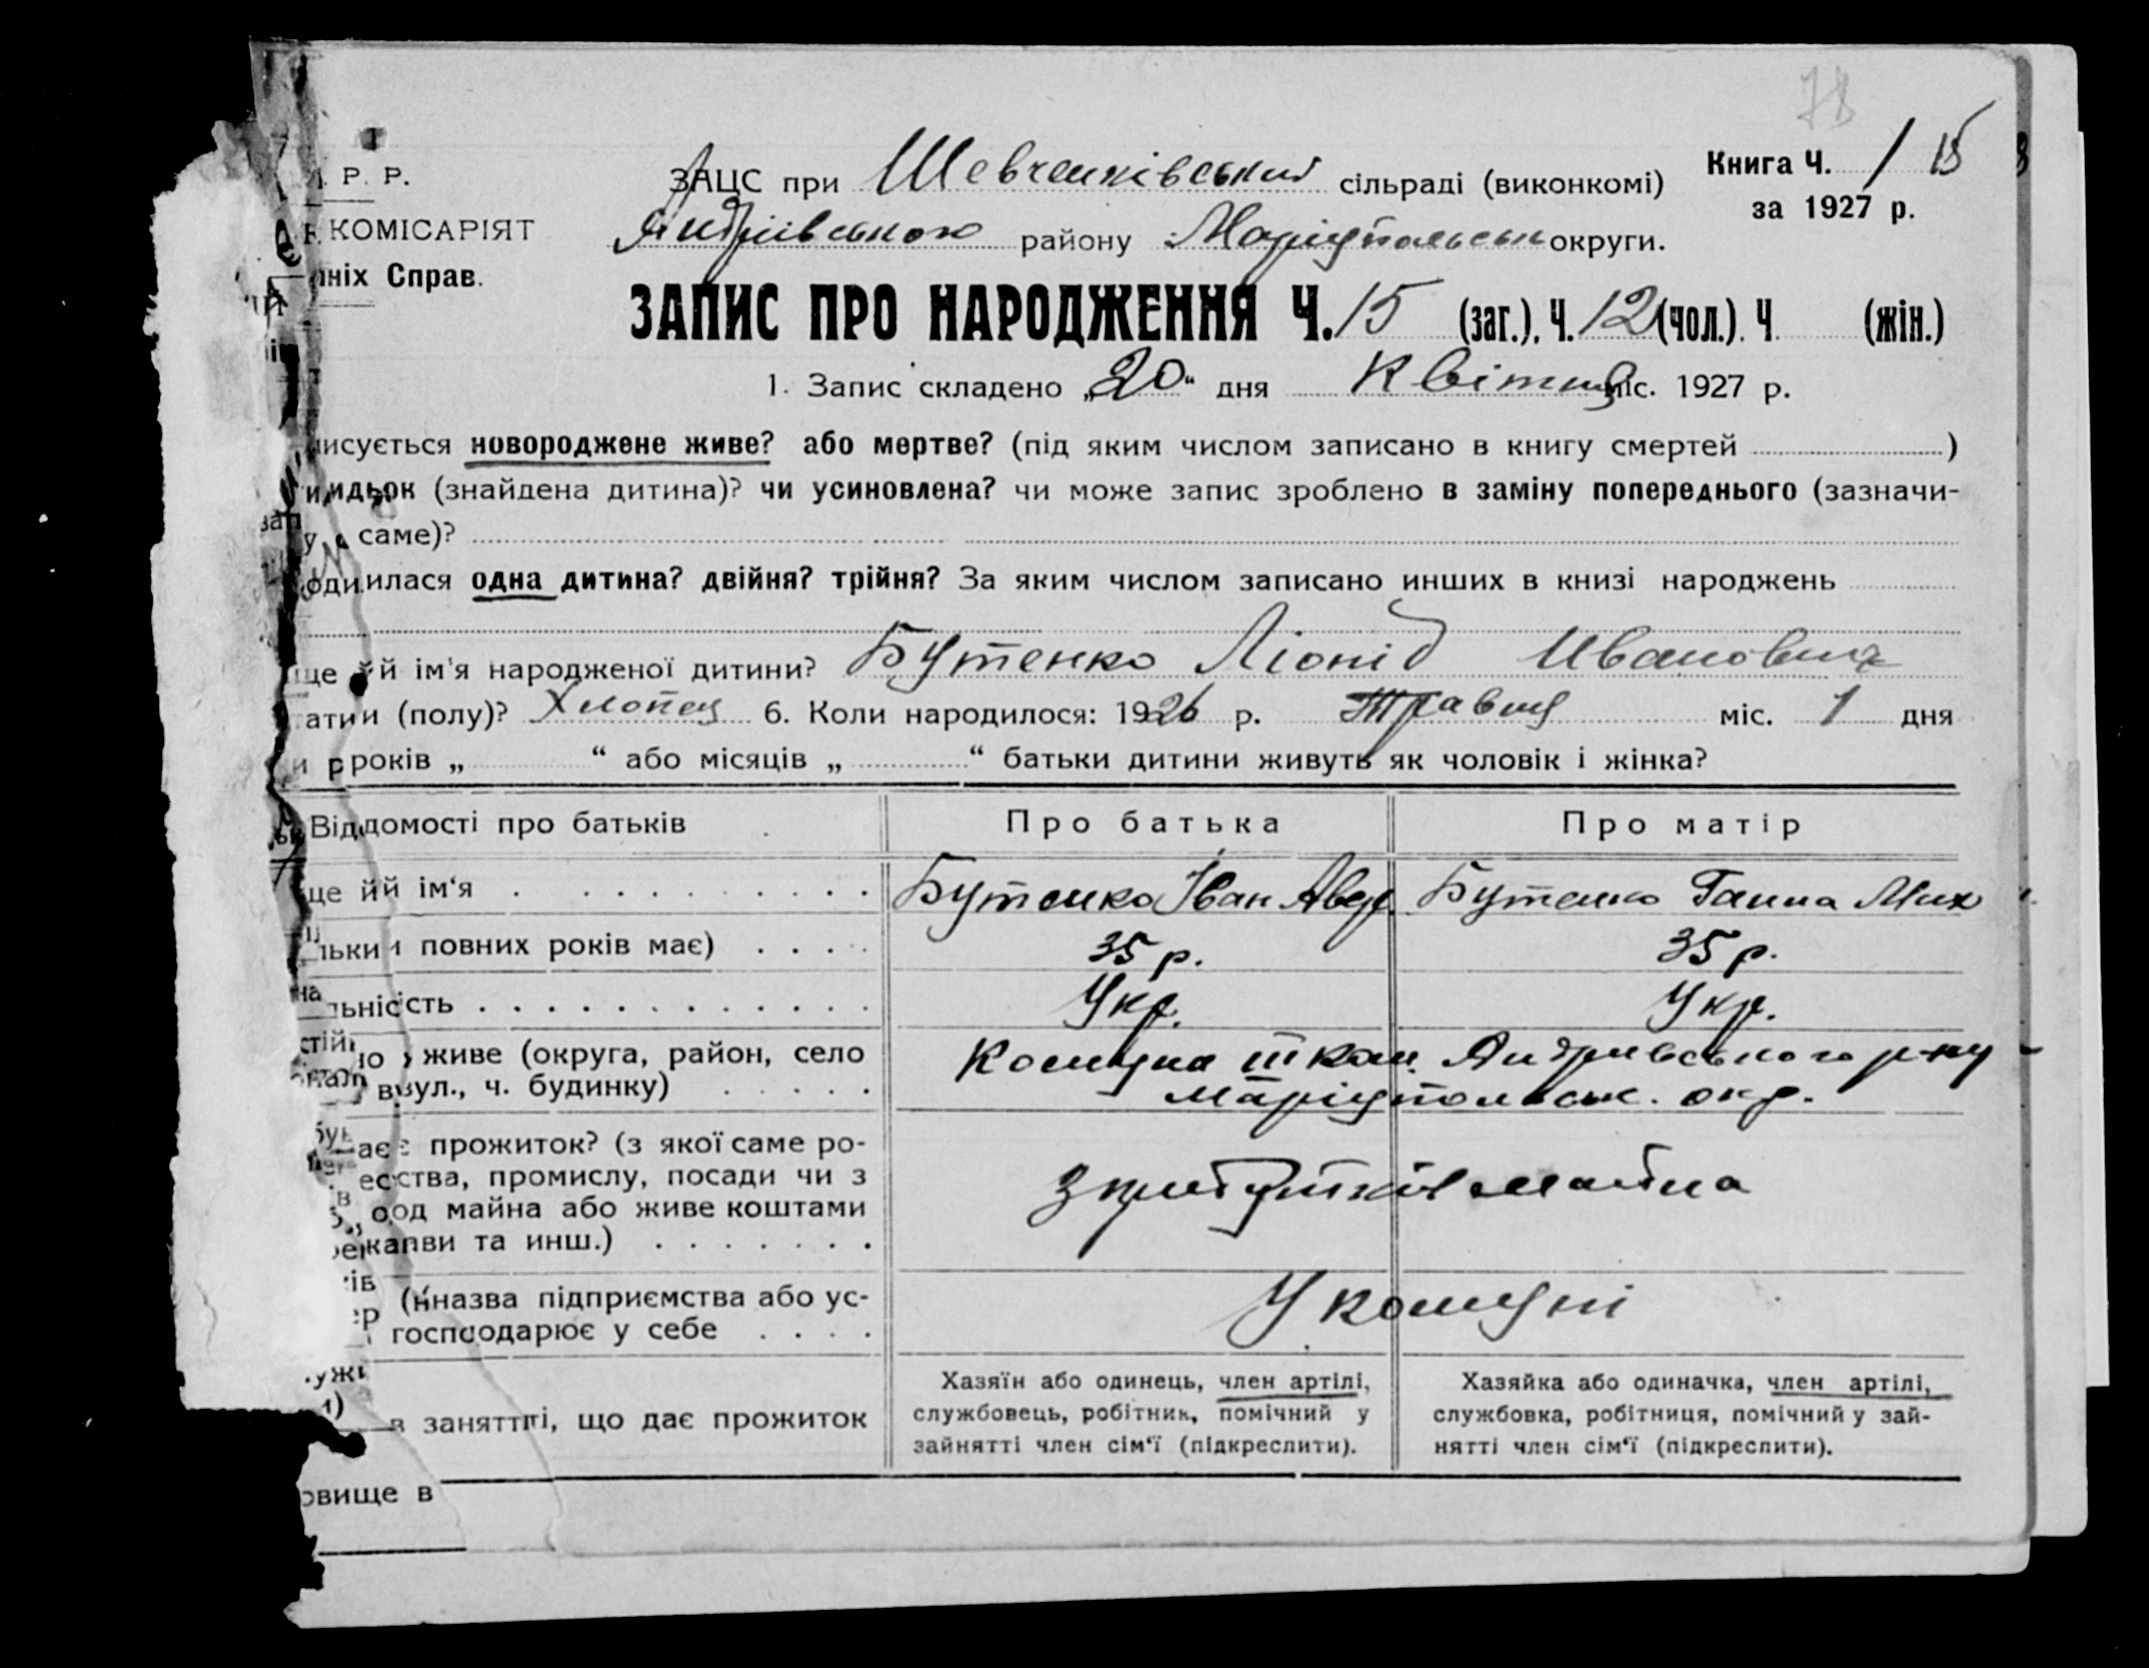 78
Р. Р.
ЗАЦС при Шевченківський сільраді (виконкомі)
Книга Ч. 1 15
за 1927 р.
КОМІСАРІЯТ
Андріївського району Маріупольськ округи.
ніх Справ.
ЗАПИС ПРО НАРОДЖЕННЯ Ч. 15 (заг.), Ч. 12 (чол.). Ч. (жін.)
1. Запис складено „20“ дня Квітня міс. 1927 р.
исується новороджене живе? або мертве? (під яким числом записано в книгу смертей )
идьок (знайдена дитина)? чи усиновлена? чи може запис зроблено в заміну попереднього (зазначи-
у саме)?
одилася одна дитина? двійня? трійня? За яким числом записано инших в книзі народжень
ще й ім'я народженої дитини? Бутенко Ліонід Иванович
ати (полу)? Хлопец 6. Коли народилося: 1926 р. Травця міс. 1 дня
и років „ “ або місяців „ “ батьки дитини живуть як чоловік і жінка?
Відомості про батьків Про батька Про матір
ще й ім‘я Бутенко Іван Авер. Бутенко Ганна Мих
льки повних років має) 35 р. 35 р.
льність Укр. Укр.
но живе (округа, район, село
вул., ч. будинку)
Комуна Андріивського р-ну
Маріупольськ. окр.
ає прожиток? (з якої саме ро-
ества, промислу, посади чи з
од майна або живе коштами
кави та инш.)
З прибутків майна
(назва підприємства або ус-
господарює у себе
У комуні
в занятті, що дає прожиток
Хазяїн або одинець, член артілі,
службовець, робітник, помічний у
зайнятті член сім‘ї (підкреслити).
Хазяйка або одиначка, член артілі,
службовка, робітниця, помічний у зай-
нятті член сім‘ї (підкреслити).
овище в